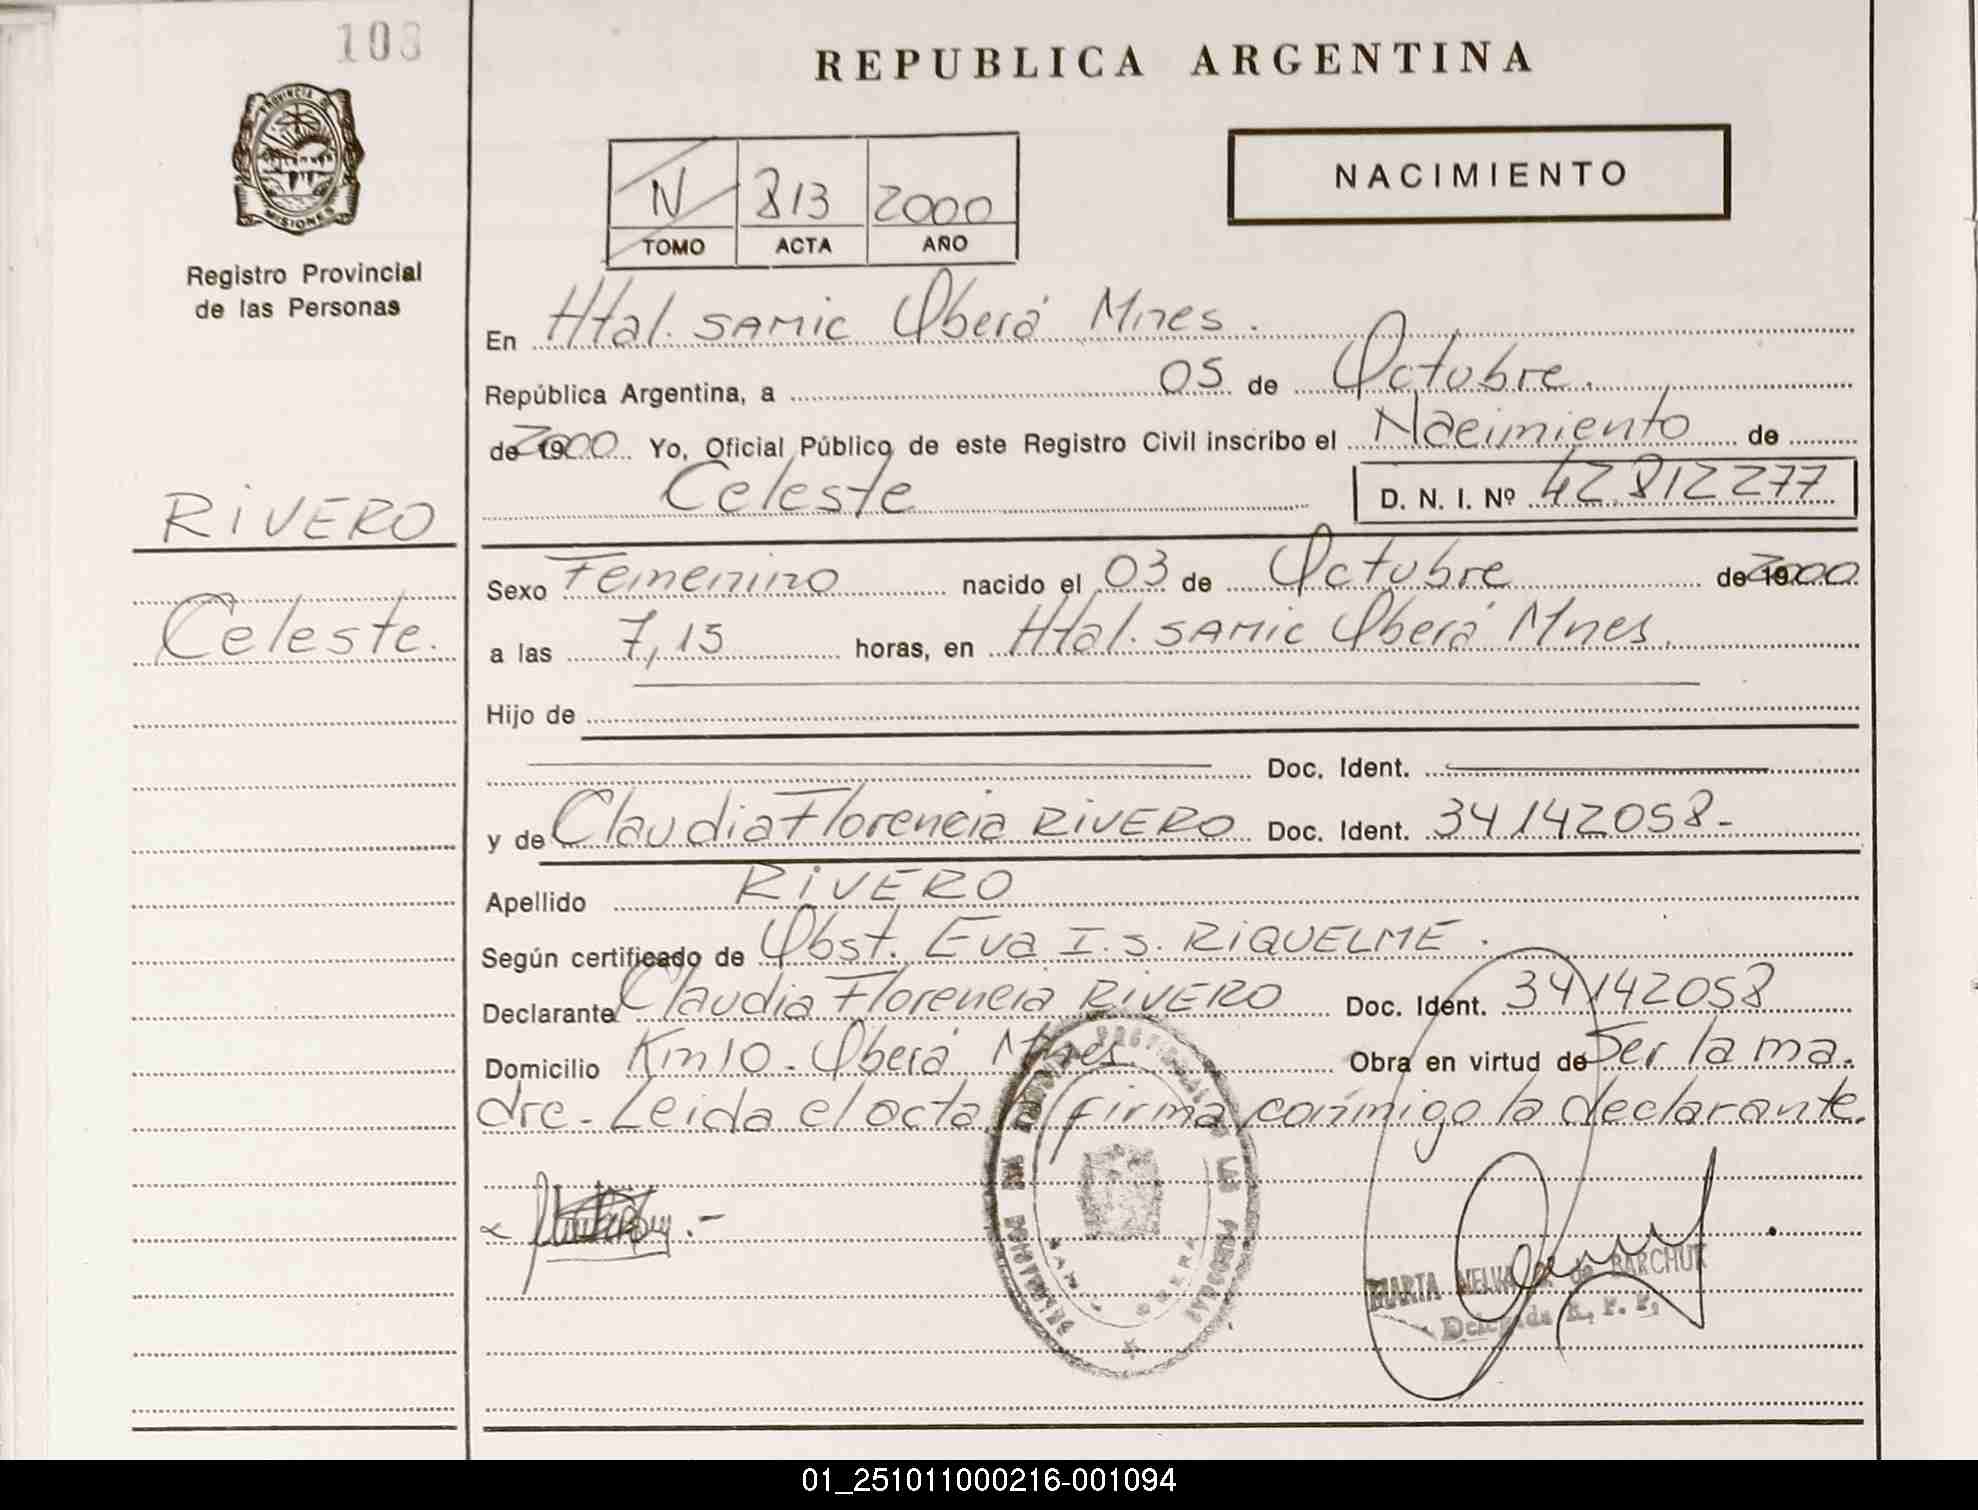 103
REPUBLICA ARGENTINA
PROVINCIA DE
MISIONES
Registro Provincial
de las Personas
NACIMIENTO
N 813 2000
TOMO ACTA AÑO
En Htal. SAMIC Oberá Mnes.
República Argentina, a 05 de Octubre.
de 2000 Yo, Oficial Público de este Registro Civil inscribo el Nacimiento de
Celeste D. N. I. Nº 42.812277
RIVERO
Celeste.
Sexo Femenino nacido el 03 de Octubre de 2000
a las 7,15 horas, en Htal. SAMIC Oberá Mnes.
Hijo de
Doc. Ident.
y de Claudia Florencia RIVERO Doc. Ident. 34142058-
Apellido RIVERO
Según certificado de Obst. Eva I.S. RIQUELME.
Declarante Claudia Florencia RIVERO Doc. Ident. 34142058
Domicilio Km 10 - Oberá Mnes Obra en virtud de Ser la ma-
dre - Leida el acta, firma conmigo la declarante.
MARTA de BARCHUK
Delegada R. P. P.
01_251011000216-001094